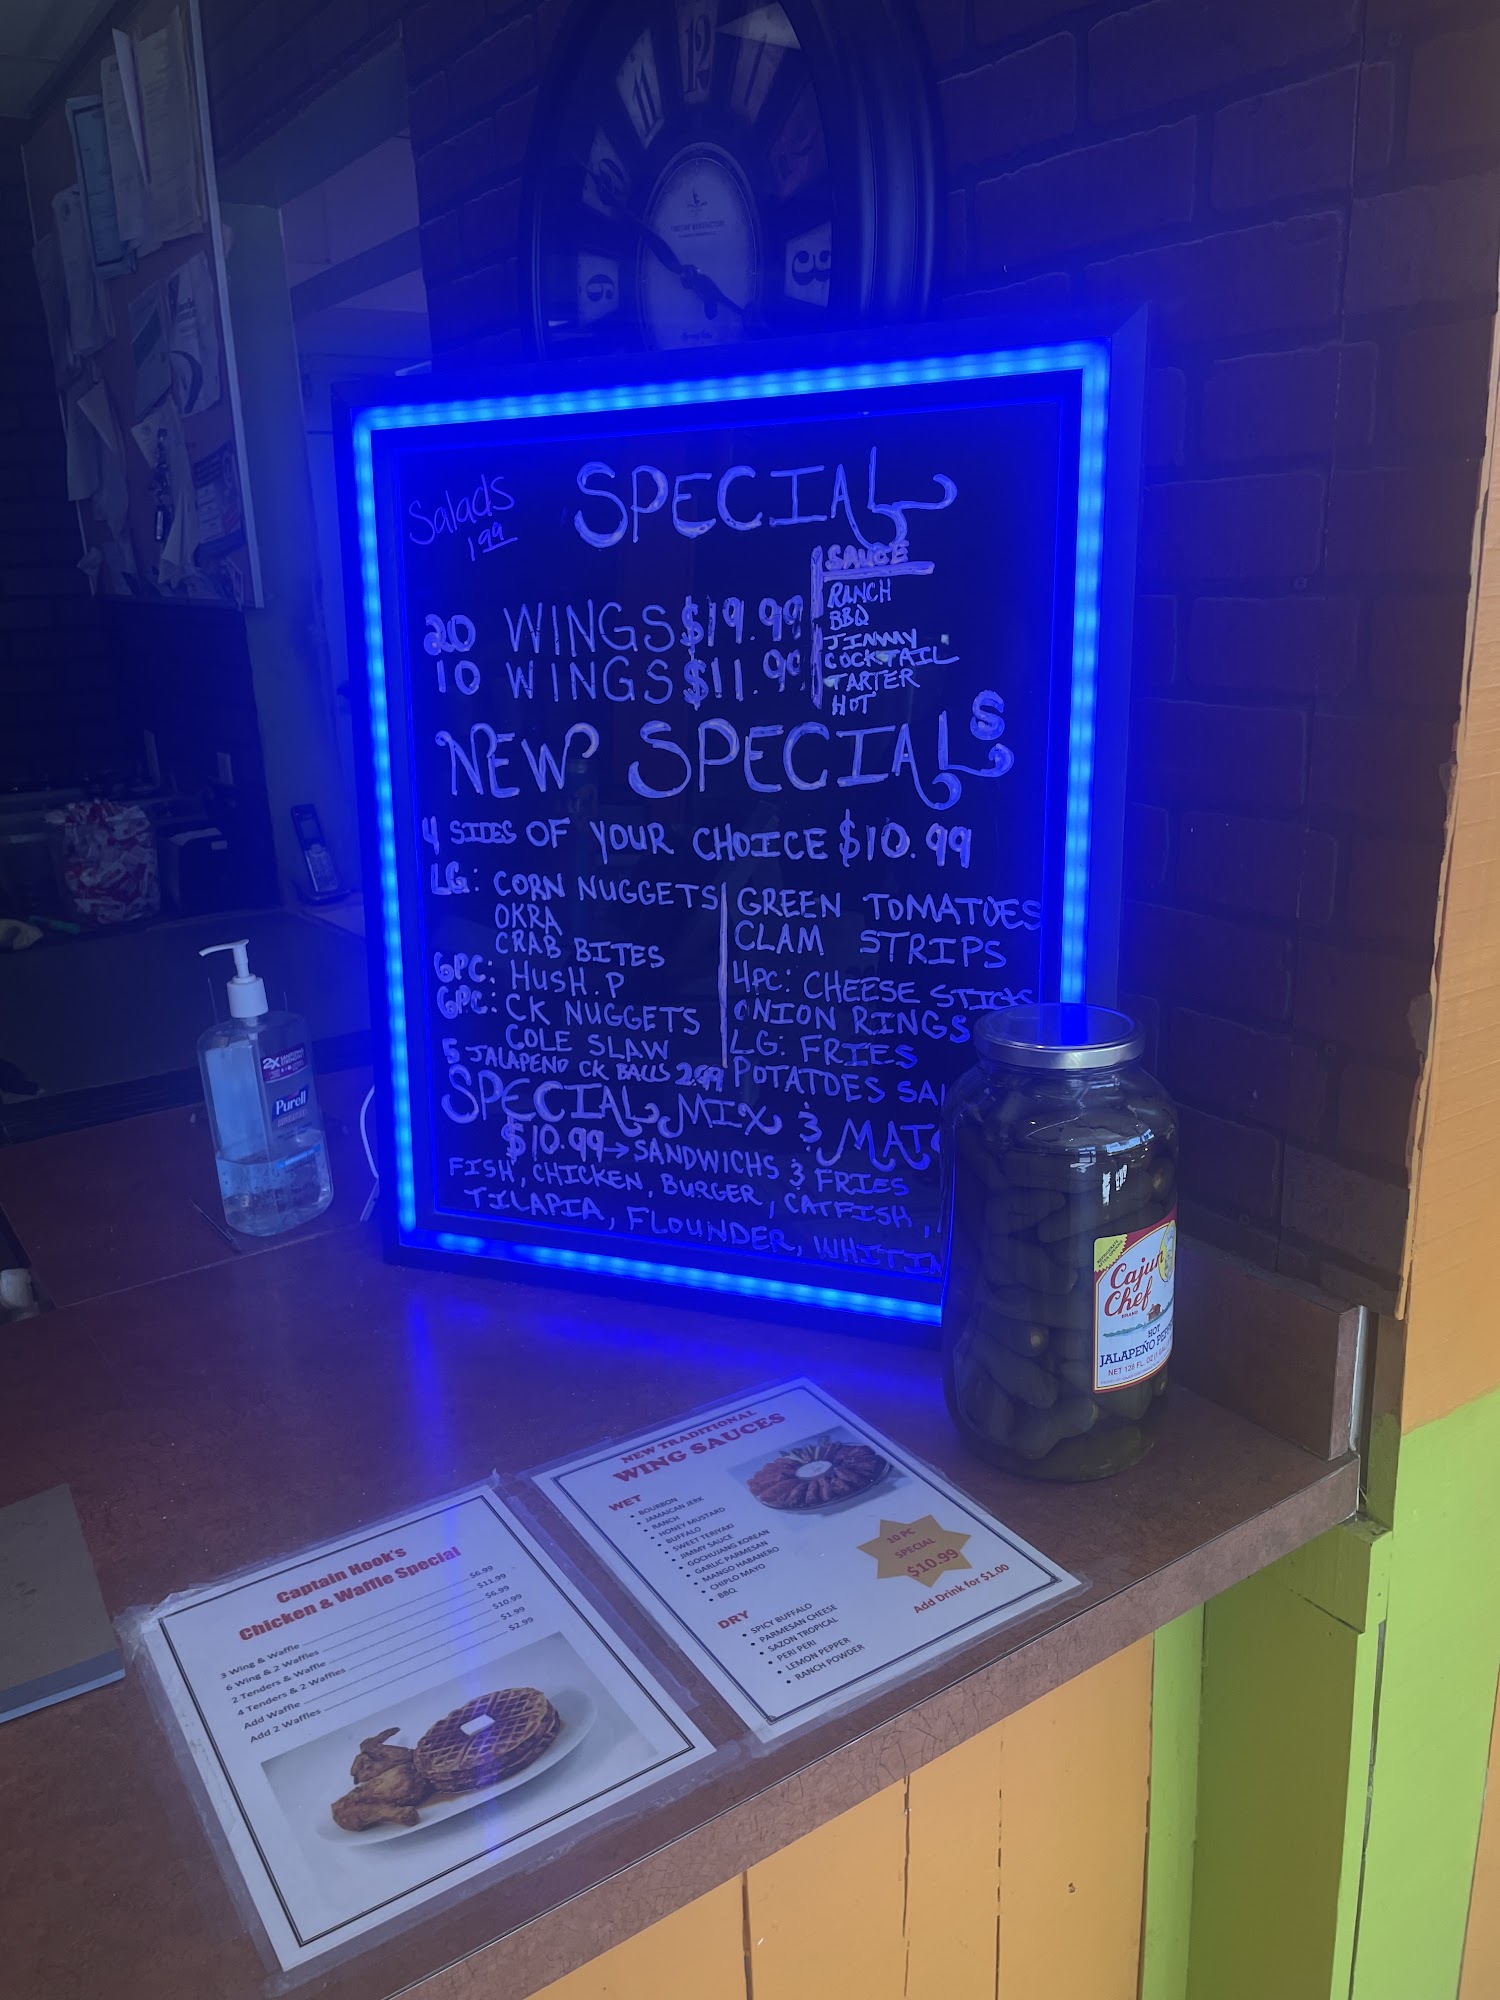 12
11
3
9
Salads
1.99
SPECIAL
SAUCE
RANCH
BBQ
JIMMY
COCKTAIL
TARTER
HOT
20 WINGS $19.99
10 WINGS $11.99
NEW SPECIALS
4 SIDES OF YOUR CHOICE $10.99
LG: CORN NUGGETS
OKRA
CRAB BITES
6PC: HUSH.P
6PC: CK NUGGETS
COLE SLAW
5 JALAPENO CK BALLS 2.99
GREEN TOMATOES
CLAM STRIPS
4PC: CHEESE STICKS
ONION RINGS
LG: FRIES
POTATOES SAL
SPECIAL MIX & MATC
$10.99→ SANDWICHS & FRIES
FISH, CHICKEN, BURGER, CATFISH,
TILAPIA, FLOUNDER, WHITIN
2X
Purell
Cajun
Chef
BRAND
HOT
JALAPEÑO PEPP
NET 128 FL. OZ.
NEW TRADITIONAL
WING SAUCES
WET
• BOURBON
• JAMAICAN JERK
• RANCH
• HONEY MUSTARD
• BUFFALO
• SWEET TERIYAKI
• JIMMY SAUCE
• GOCHUJANG KOREAN
• GARLIC PARMESAN
• MANGO HABANERO
• CHIPLO MAYO
• BBQ
DRY
• SPICY BUFFALO
• PARMESAN CHEESE
• SAZON TROPICAL
• PERI PERI
• LEMON PEPPER
• RANCH POWDER
10 PC
SPECIAL
$10.99
Add Drink for $1.00
Captain Hook's
Chicken & Waffle Special
3 Wing & Waffle $6.99
6 Wing & 2 Waffles $11.99
2 Tenders & Waffle $6.99
4 Tenders & 2 Waffles $10.99
Add Waffle $1.99
Add 2 Waffles $2.99